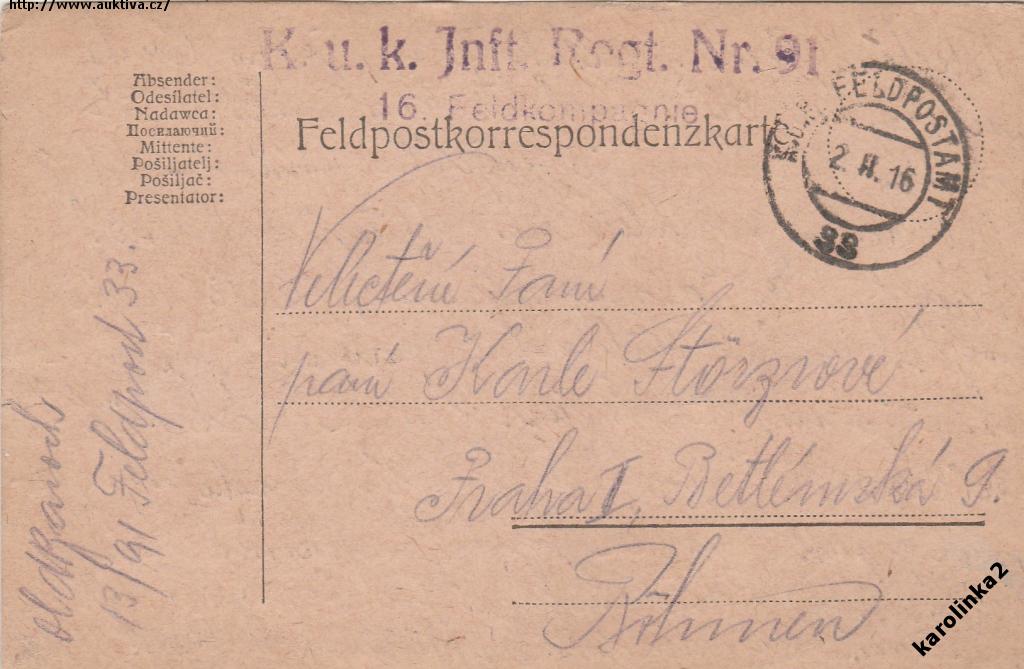 http://www.auktiva.cz/
K. u. k. Jnft. Regt. Nr. 91
16. Feldkompagnie
Feldpostkorrespondenzkarte
K.u.K. FELDPOSTAMT
2. II. 16
33
Absender:
Odesílatel:
Nadawca:
Посилаючий:
Mittente:
Pošiljatelj:
Pošiljač:
Presentator:
Velectěné Paní
paní Karle Störzrové
Praha I, Betlémská 9.
Böhmen
13/91 Feldpost 33.
karolinka2